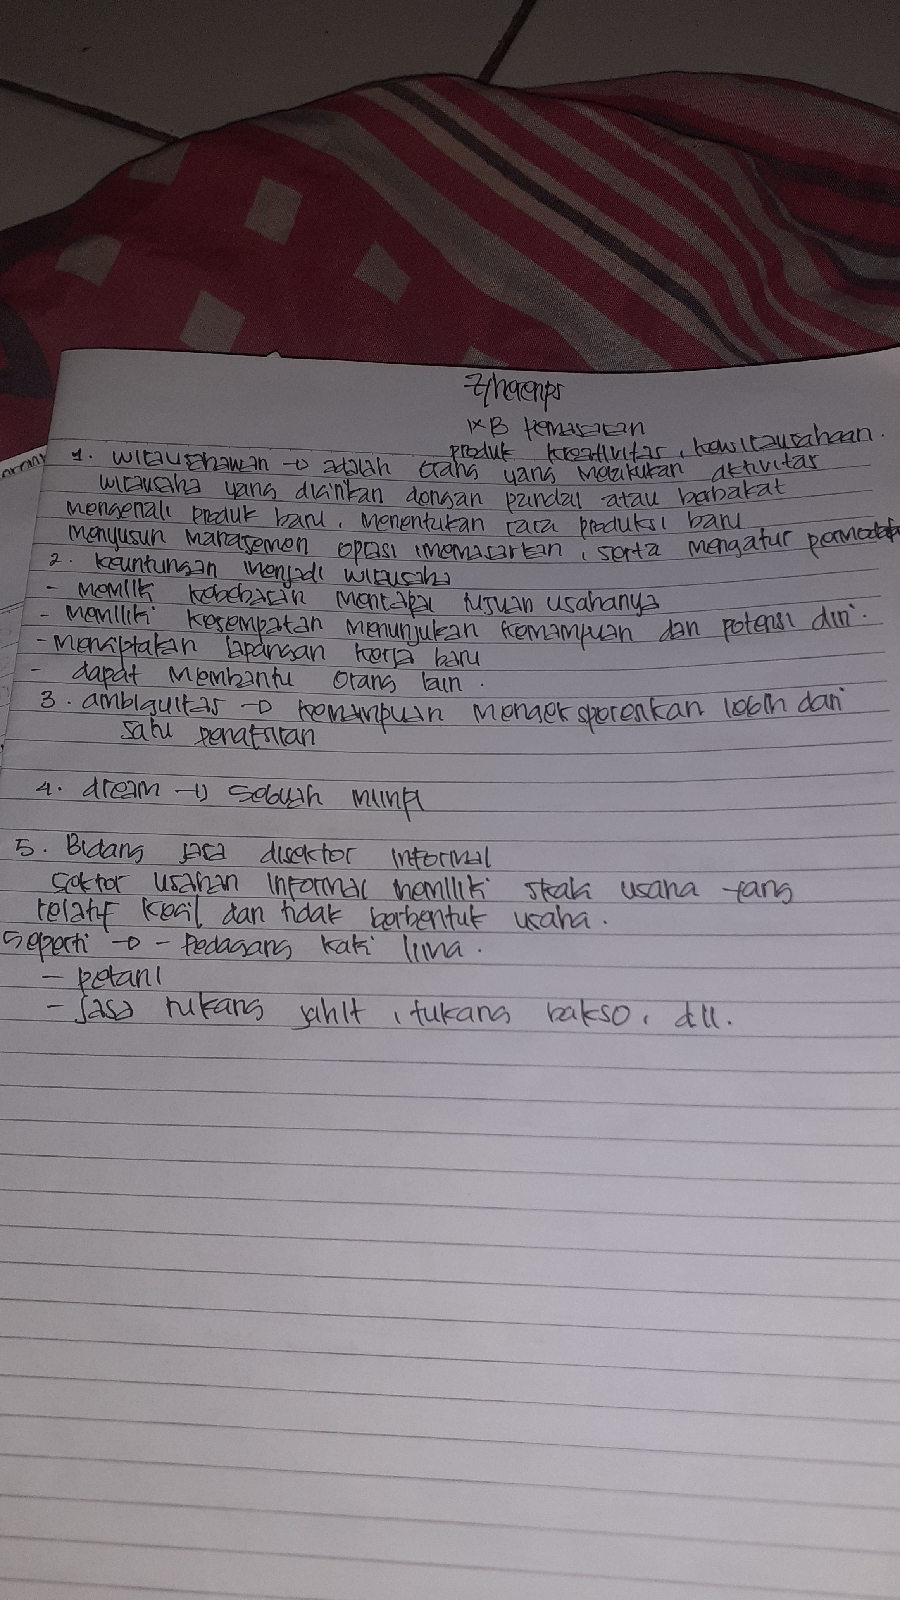 IXB Pemasaran
produk kreativitas, kewirausahaan.
1. wirausahawan → adalah orang yang melakukan aktivitas
wirausaha yang dicirikan dengan pandai atau berbakat
mengenali produk baru, menentukan cara produksi baru
menyusun manajemen oprasi, memasarkan, serta mengatur
2. keuntungan menjadi wirausaha
- memilik kebebasan mencapai tujuan usahanya
- memiliki kesempatan menunjukan kemampuan dan potensi diri.
- menciptakan lapangan kerja baru
- dapat membantu orang lain.
3. ambiguitas → kemampuan lebih dari
satu penafsiran
4. dream → sebuah mimpi
5. Bidang jasa disektor informal
Sektor usahan informal memiliki skala usaha yang
relatif kecil dan tidak berbentuk usaha.
Seperti → - Pedagang kaki lima.
- petani
- Jasa tukang jahit, tukang bakso, dll.